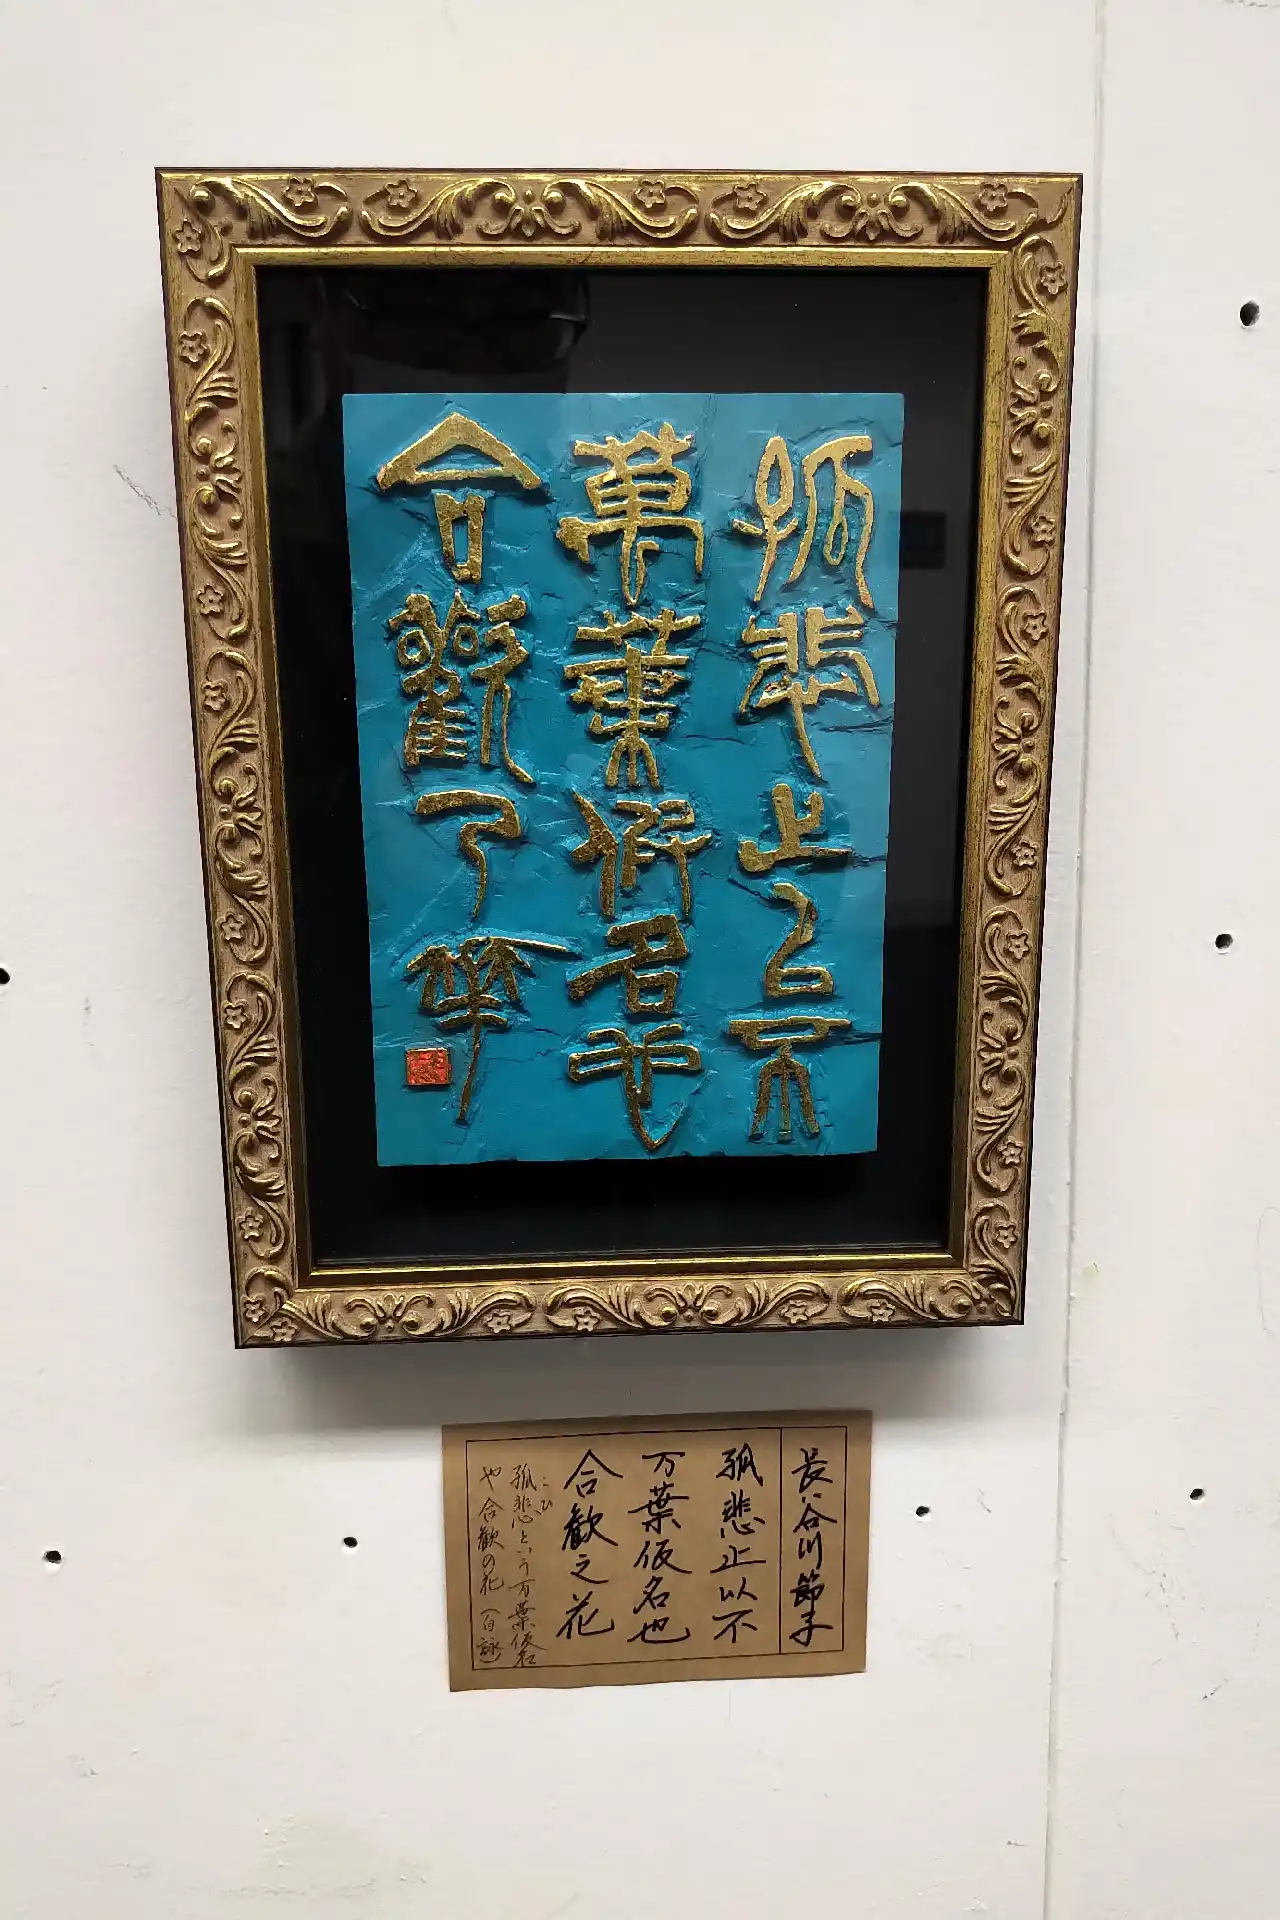 孤悲止以不
萬葉假名也
合歡之華
長谷川節子
孤悲止以不
万葉仮名也
合歓之花
こひ
孤悲という万葉仮名
や合歓の花(自詠)